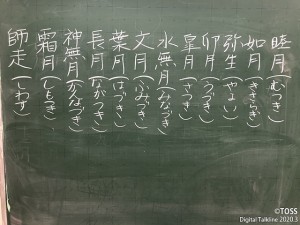 睦月(むつき)
如月(きさらぎ)
弥生(やよい)
卯月(うづき)
皐月(さつき)
水無月(みなづき)
文月(ふみづき)
葉月(はづき)
長月(ながつき)
神無月(かんなづき)
霜月(しもつき)
師走(しわす)
©TOSS
Digital Talkline 2020.3